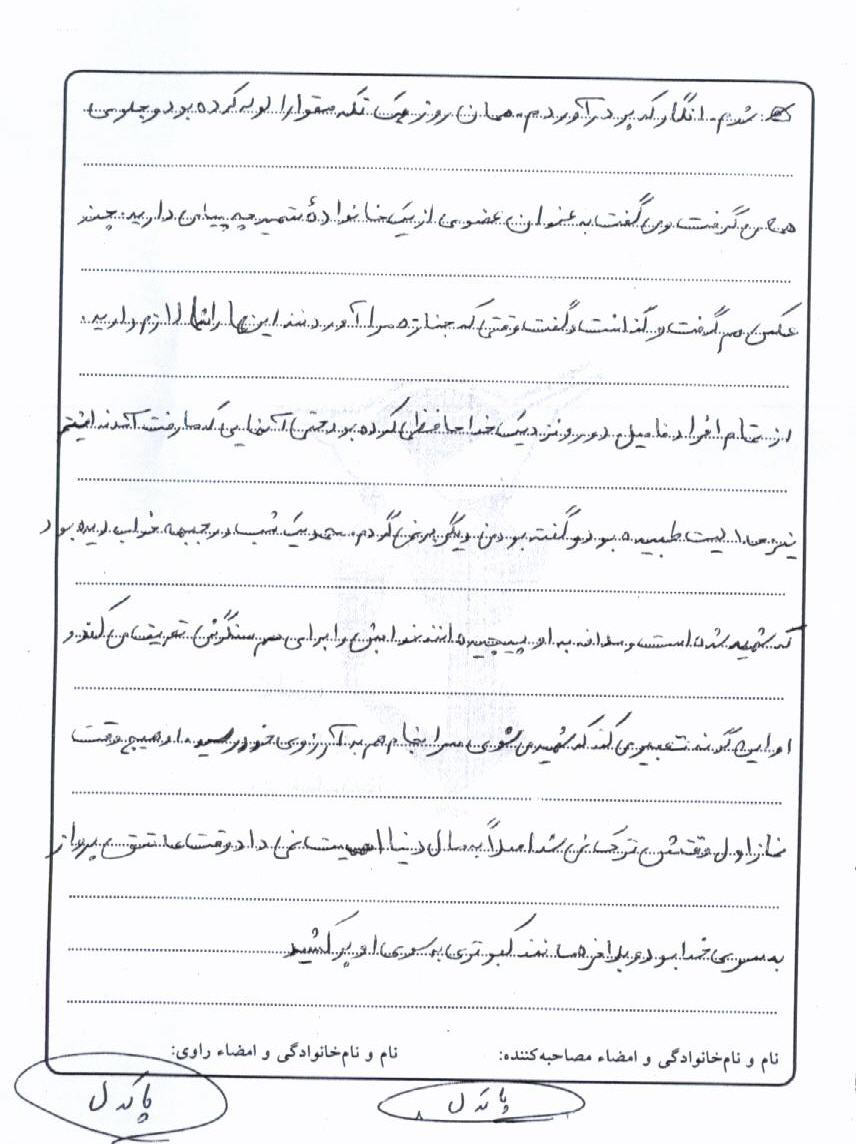 شدم. انگار که پر درآوردم. همان روز یک تکه مقوا را لوله کرده بود و جلوی
همه می گرفت و می گفت به عنوان عضوی از یک خانوادهٔ شهید چه پیامی دارید. چند
عکس هم گرفت و گذاشت و گفت وقتی که جنازه مرا آوردند این ها را شما لازم دارید.
از تمام افراد فامیل دور و نزدیک خداحافظی کرده بود حتی آنهایی که
نیز حلالیت طلبیده بود و گفته بود من دیگر برنمی گردم. یک شب در جبهه خواب دیده بود
که شهید شده است و به او پیچیده اند خوابش را برای هم سنگرش تعریف می کند و
او این گونه تعبیر می کند که شهید می شوی سرانجام هم به آرزوی خود رسید. او هیچ وقت
نماز اول وقتش ترک نمی شد اصلاً به مال دنیا اهمیت نمی داد و عاشق پرواز
به سوی خدا بود و بلاخره مانند کبوتری به سوی او پر کشید
نام و نام‌خانوادگی و امضاء مصاحبه‌کننده: نام و نام‌خانوادگی و امضاء راوی:
پاکدل پاکدل